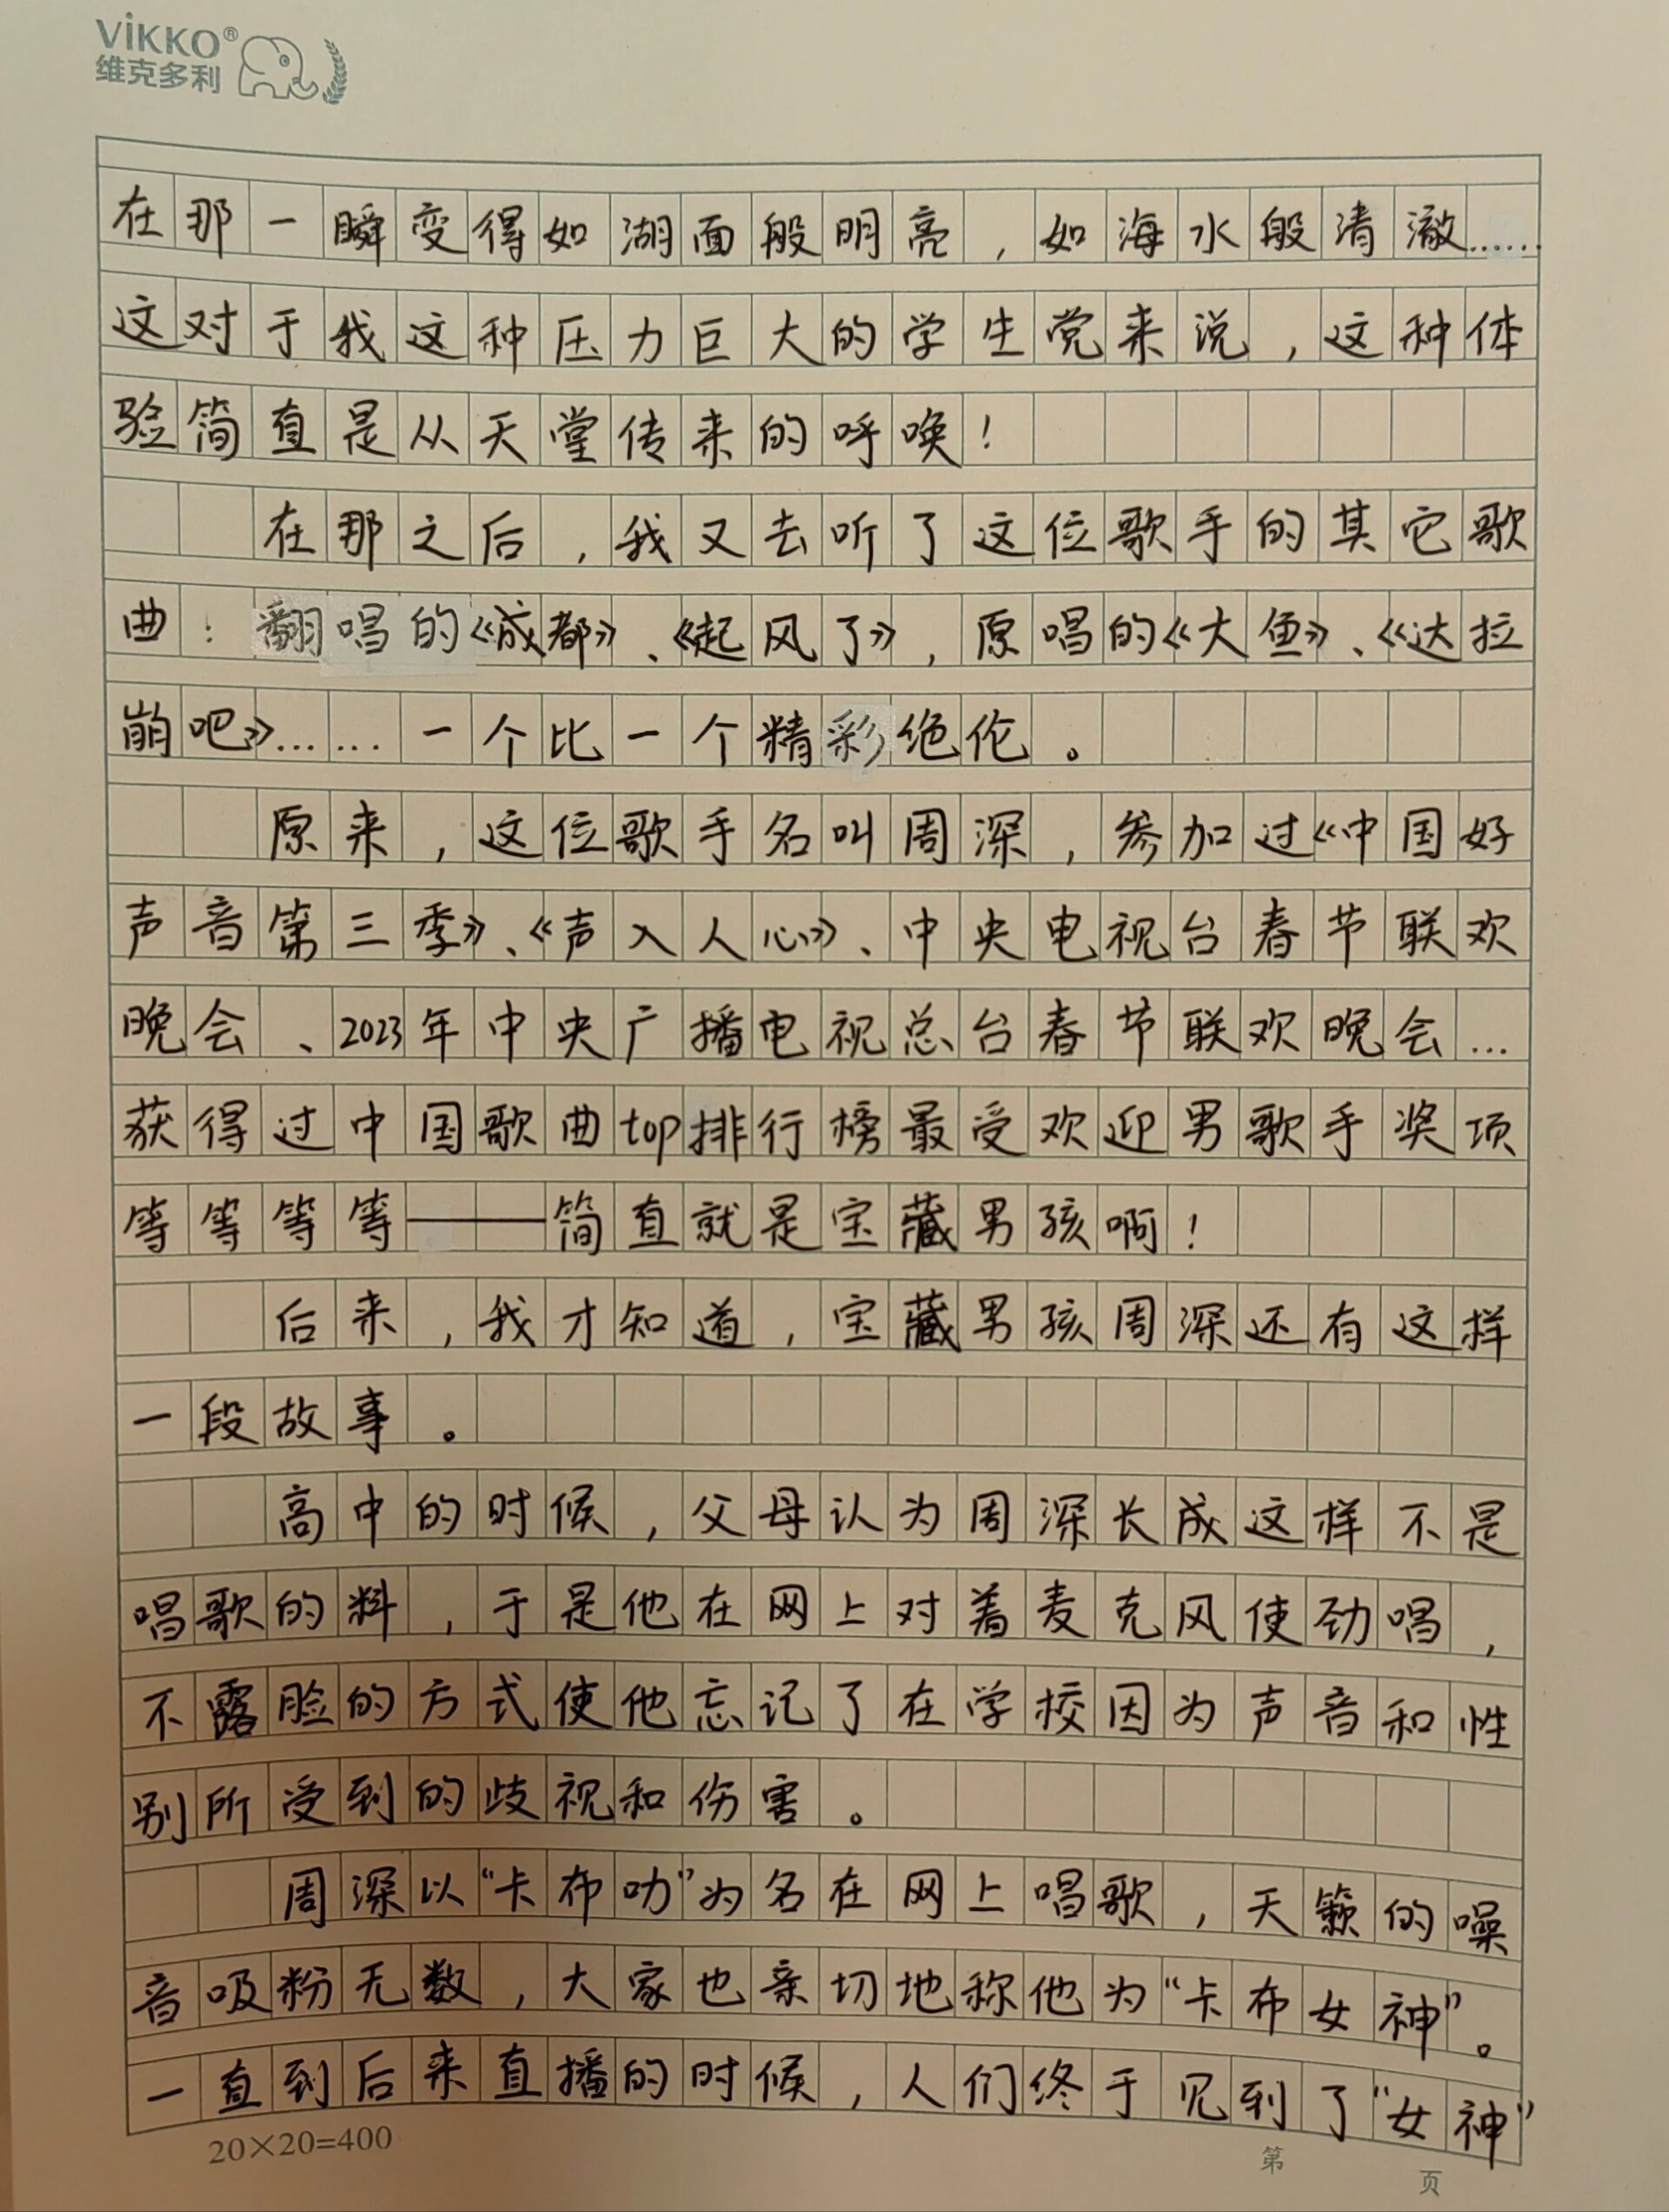 VİKKO®
维克多利
在那一瞬变得如湖面般明亮，如海水般清澈……
这对于我这种压力巨大的学生党来说，这种体
验简直是从天堂传来的呼唤！
在那之后，我又去听了这位歌手的其它歌
曲：翻唱的《成都》、《起风了》，原唱的《大鱼》、《达拉
崩吧》……一个比一个精彩绝伦。
原来，这位歌手名叫周深，参加过《中国好
声音第三季》、《声入人心》、中央电视台春节联欢
晚会、2023年中央广播电视总台春节联欢晚会…
获得过中国歌曲top排行榜最受欢迎男歌手奖项
等等等等——简直就是宝藏男孩啊！
后来，我才知道，宝藏男孩周深还有这样
一段故事。
高中的时候，父母认为周深长成这样不是
唱歌的料，于是他在网上对着麦克风使劲唱，
不露脸的方式使他忘记了在学校因为声音和性
别所受到的歧视和伤害。
周深以“卡布叻”为名在网上唱歌，天籁的噪
音吸粉无数，大家也亲切地称他为“卡布女神”。
一直到后来直播的时候，人们终于见到了“女神”
20×20=400
第 页